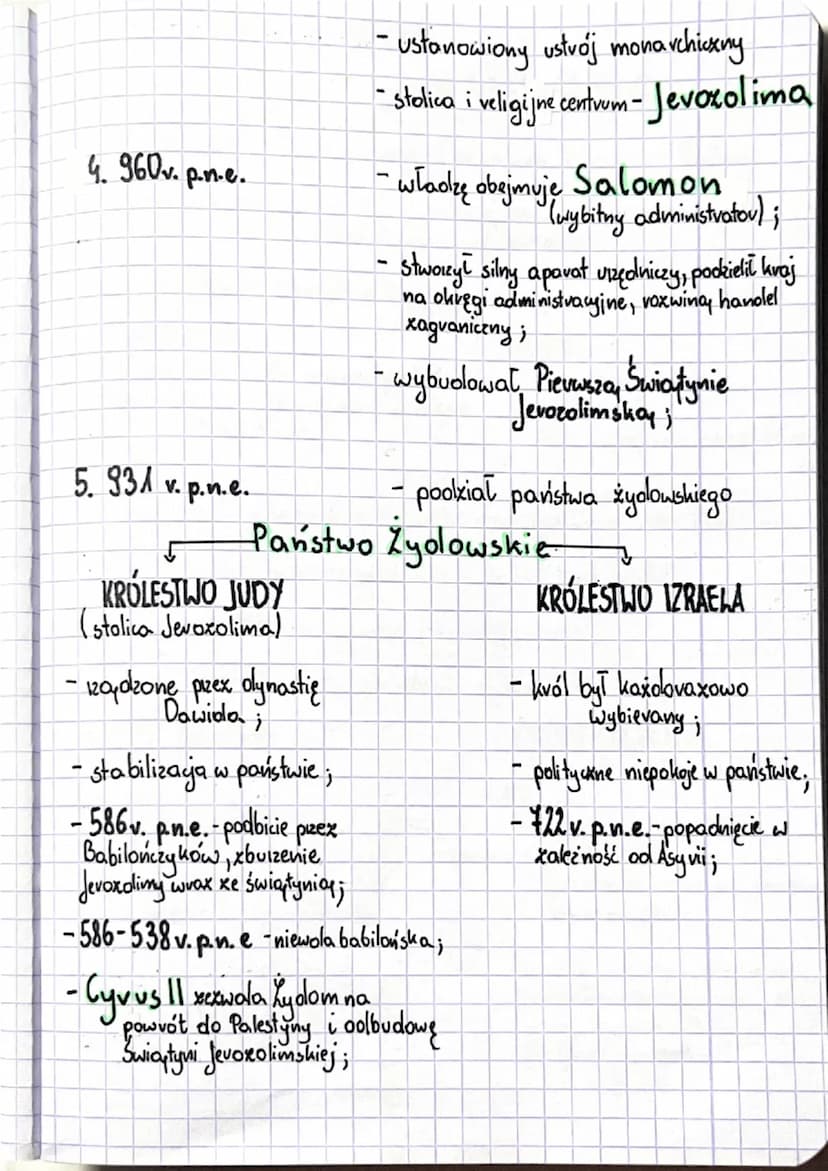 - ustanowiony ustrój monarchiczny
- stolica i religijne centrum - Jerozolima
4. 960r. p.n.e.
- władzę obejmuje Salomon
(wybitny administrator) ;
- stworzył silny aparat urzędniczy, podzielił kraj
na okręgi administracyjne, rozwinął handel
zagraniczny ;
- wybudował Pierwszą Świątynie
Jerozolimską ;
5. 931 r. p.n.e.
- podział państwa żydowskiego
Państwo Żydowskie
KRÓLESTWO JUDY
(stolica Jerozolima)
- rządzone przez dynastię
Dawida ;
- stabilizacja w państwie ;
- 586r. p.n.e. - podbicie przez
Babilończyków, zburzenie
Jerozolimy wraz ze świątynią ;
- 586-538 r. p.n.e - niewola babilońska ;
- Cyrus II zezwala Żydom na
powrót do Palestyny i odbudowę
Świątyni Jerozolimskiej ;
KRÓLESTWO IZRAELA
- król był każdorazowo
wybierany ;
- polityczne niepokoje w państwie ;
- 722 r. p.n.e. - popadnięcie w
zależność od Asyrii ;